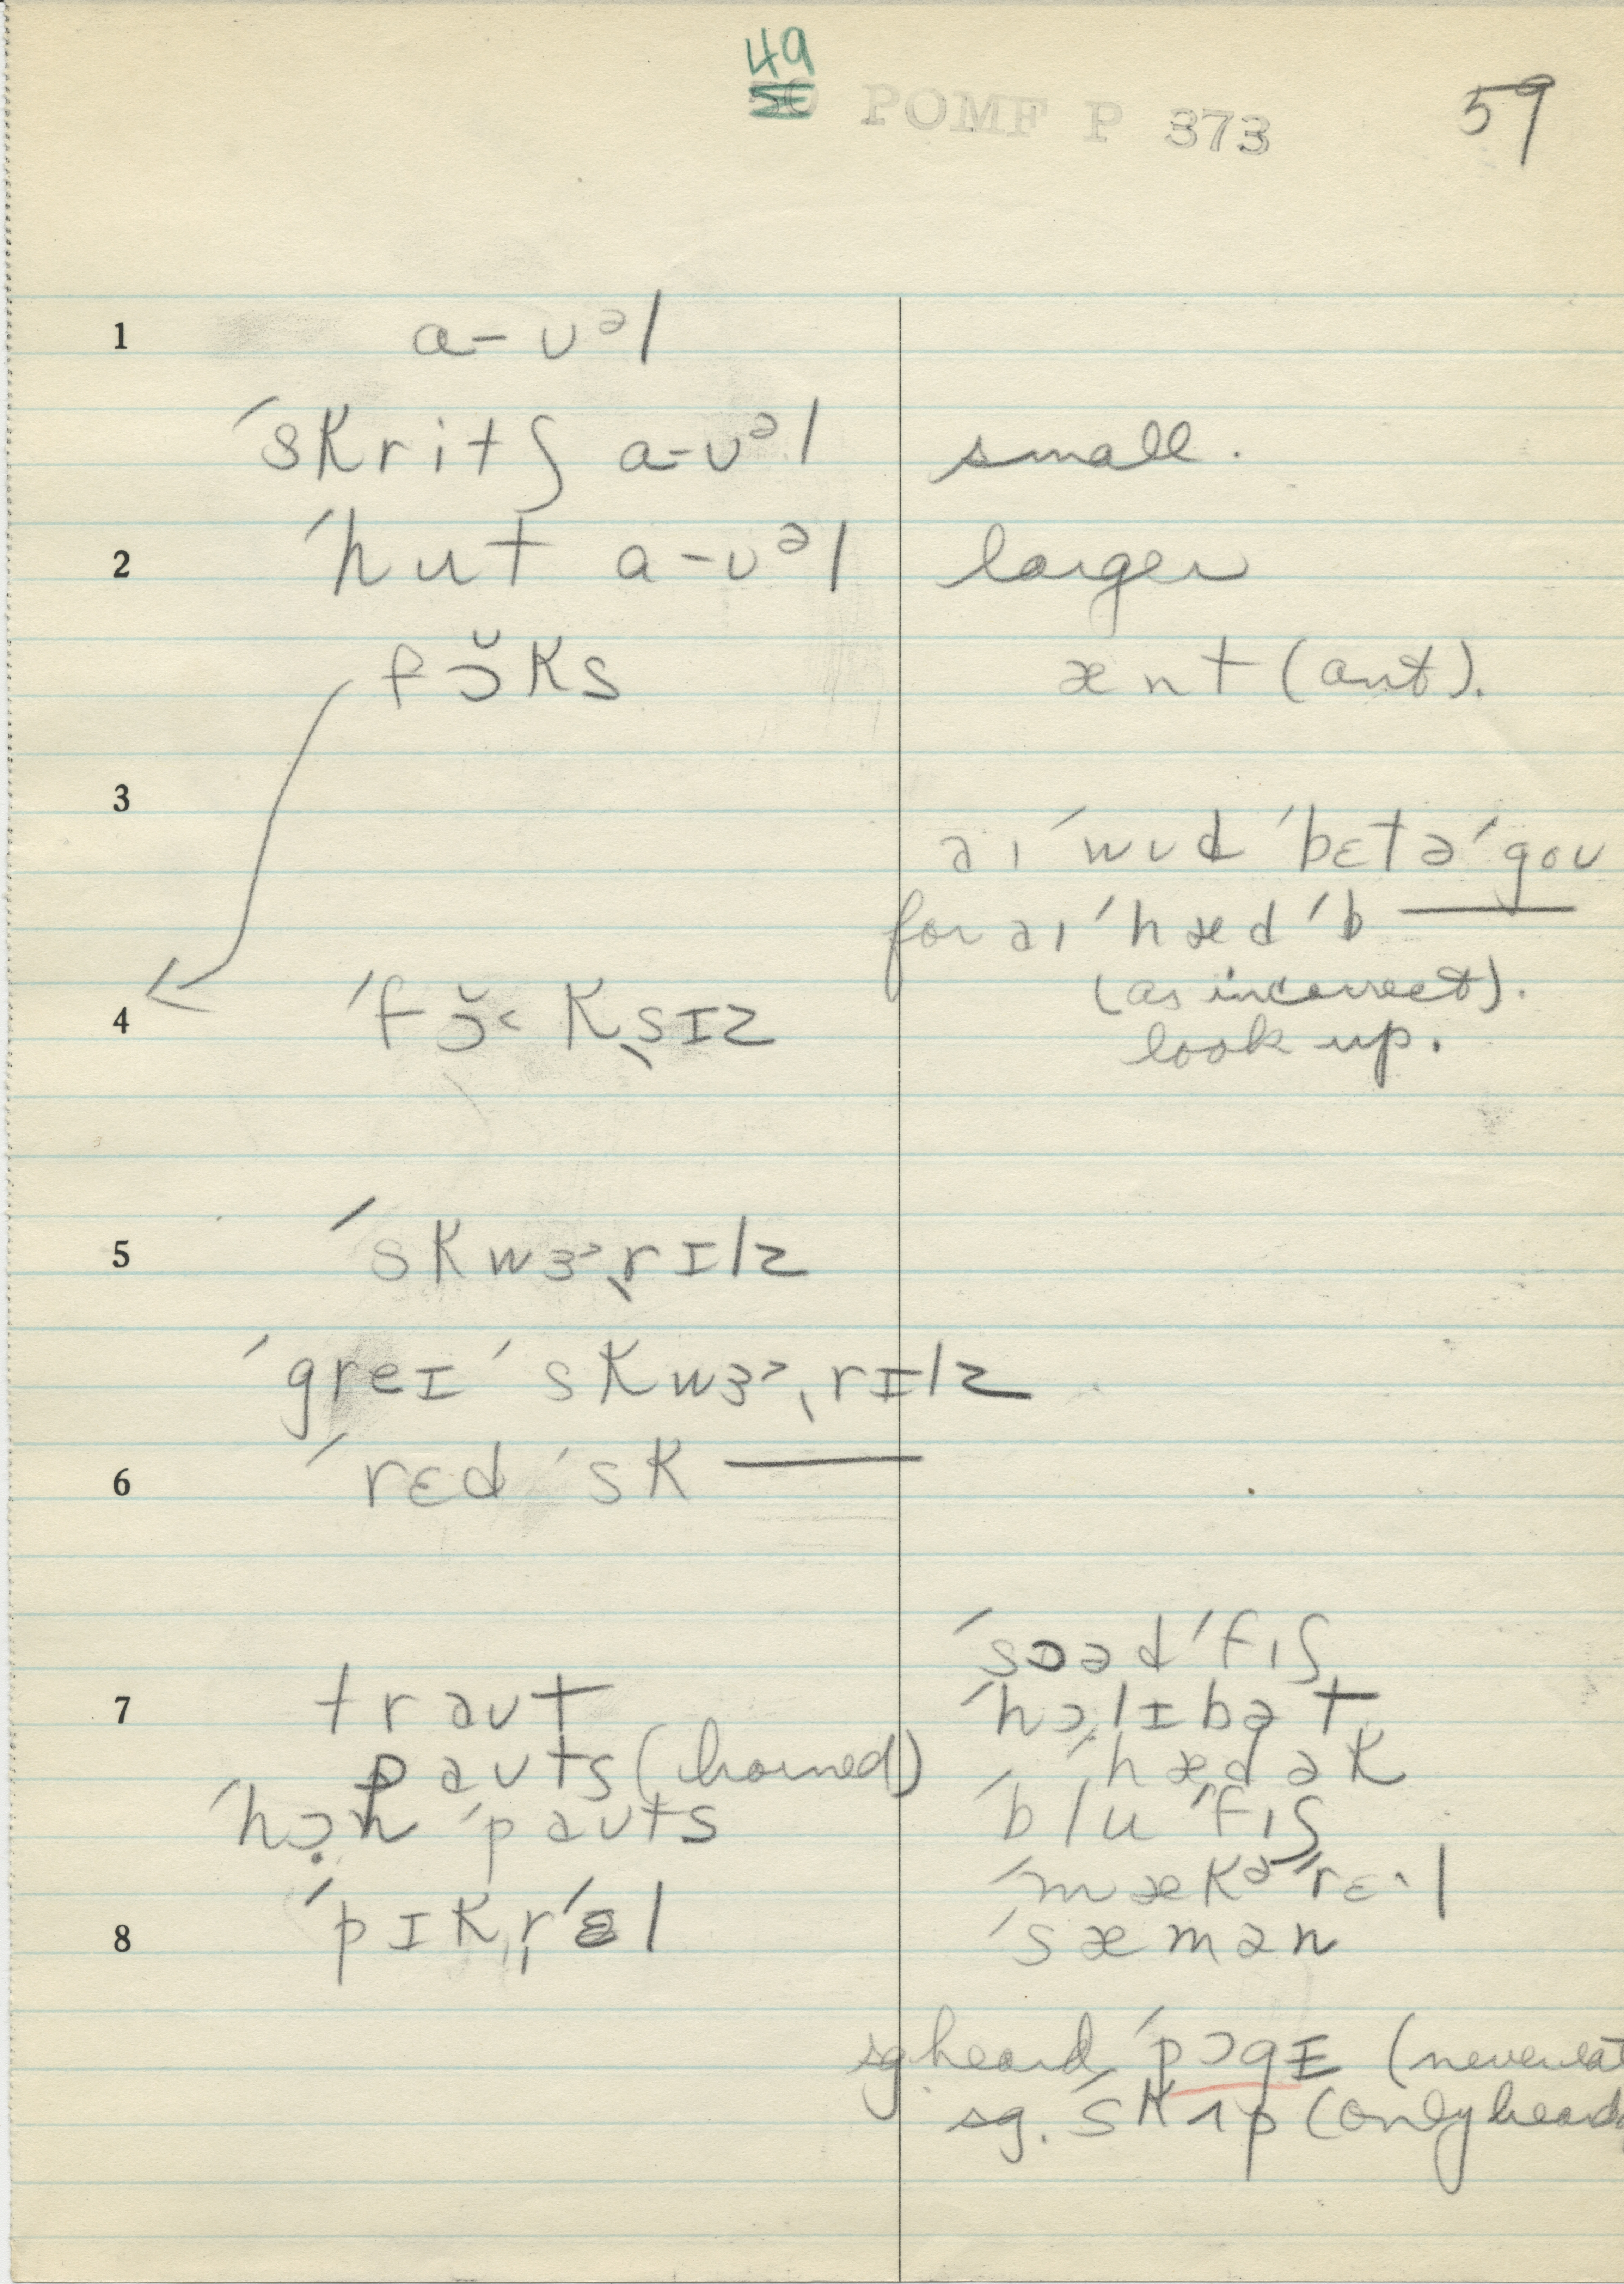 49
50 POMF P 373 59
1 a-ʊᵊl
ˈskritʃ a-ʊᵊl small.
2 ˈhut a-ʊᵊl larger
fɔ̆ks ænt (ant).
3
əɪ ˈwʊd ˈbɛtəˈgoʊ
for əɪ ˈhæd ˈb ———
(as incorrect).
4 ˈfɔ̆˂kˌsɪz look up.
5 ˈskwɝˌrɪlz
ˈgreɪ ˈskwɝˌrɪlz
6 ˈrɛd ˈsk ———
ˈsɔəd ˈfɪʃ
7 traʊt ˈhɔlɪbət
paʊts (horned) ˈhædək
ˈhɔ̣n ˈpaʊts ˈblu ˈfɪʃ
ˈmækᵊˈrɛ·l
8 ˈpɪkˌrˈɛl ˈsæmən
sg. heard ˈpɔgɪ (never eat
sg. ˈskʌp (only heard